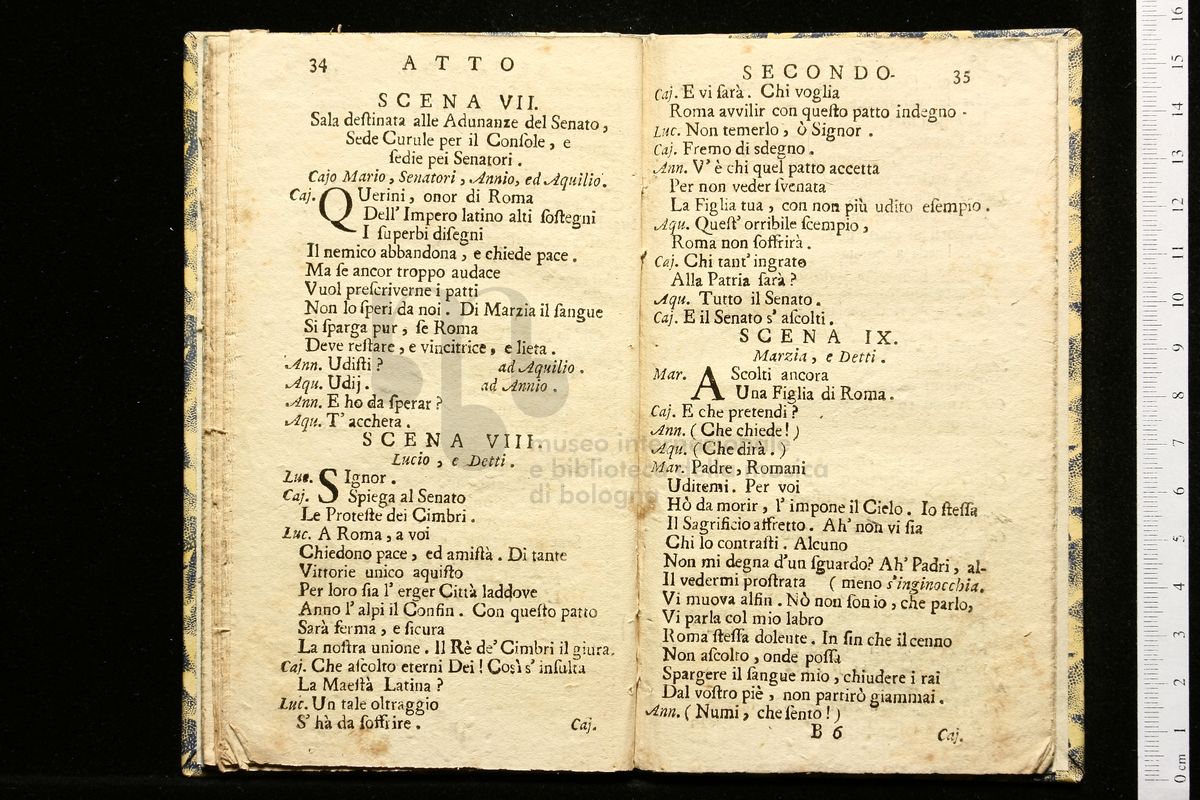 34 ATTO
SCENA VII.
Sala deſtinata alle Adunanze del Senato,
Sede Curule per il Conſole, e
ſedie pei Senatori.
Cajo Mario, Senatori, Annio, ed Aquilio.
Caj. QUerini, onor di Roma
Dell' Impero latino alti ſoſtegni
I ſuperbi diſegni
Il nemico abbandona, e chiede pace.
Ma ſe ancor troppo audace
Vuol preſcriverne i patti
Non lo ſperi da noi. Di Marzia il ſangue
Si ſparga pur, ſe Roma
Deve reſtare, e vincitrice, e lieta.
Ann. Udiſti? ad Aquilio.
Aqu. Udij. ad Annio.
Ann. E ho da ſperar?
Aqu. T' accheta.
SCENA VIII.
Lucio, e Detti.
Luc. SIgnor.
Caj. Spiega al Senato
Le Proteſte dei Cimbri.
Luc. A Roma, a voi
Chiedono pace, ed amiſtà. Di tante
Vittorie unico aquiſto
Per loro ſia l' erger Città laddove
Anno l' alpi il Confin. Con queſto patto
Sarà ferma, e ſicura
La noſtra unione. Il Rè de' Cimbri il giura.
Caj. Che aſcolto eterni Dei! Così s' inſulta
La Maeſtà Latina?
Luc. Un tale oltraggio
S' hà da ſoffrire.
Caj.
SECONDO. 35
Caj. E vi ſarà. Chi voglia
Roma avvilir con queſto patto indegno.
Luc. Non temerlo, ò Signor.
Caj. Fremo di sdegno.
Ann. V' è chi quel patto accetta
Per non veder ſvenata
La Figlia tua, con non più udito eſempio.
Aqu. Queſt' orribile ſcempio,
Roma non ſoffrirà.
Caj. Chi tant' ingrato
Alla Patria ſarà?
Aqu. Tutto il Senato.
Caj. E il Senato s' aſcolti.
SCENA IX.
Marzia, e Detti.
Mar. AScolti ancora
Una Figlia di Roma.
Caj. E che pretendi?
Ann. (Che chiede!)
Aqu. (Che dirà.)
Mar. Padre, Romani
Uditemi. Per voi
Hò da morir, l' impone il Cielo. Io ſteſſa
Il Sagrificio affretto. Ah' non vi ſia
Chi lo contraſti. Alcuno
Non mi degna d'un ſguardo? Ah' Padri, al-
Il vedermi proſtrata (meno s'inginocchia.
Vi muova alfin. Nò non ſon io, che parlo,
Vi parla col mio labro
Roma ſteſſa dolente. In ſin che il cenno
Non aſcolto, onde poſſa
Spargere il ſangue mio, chiudere i rai
Dal voſtro piè, non partirò giammai.
Ann. (Numi, che ſento!)
B 6 Caj.
museo internazionale
e biblioteca della musica
di bologna